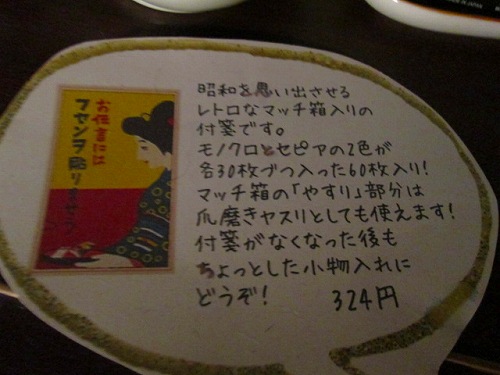 お伝言には
フセンヲ貼りませう
昭和を思い出させる
レトロなマッチ箱入りの
付箋です。
モノクロとセピアの2色が
各30枚づつ入った60枚入り!
マッチ箱の「やすり」部分は
爪磨きヤスリとしても使えます!
付箋がなくなった後も
ちょっとした小物入れに
どうぞ!
324円